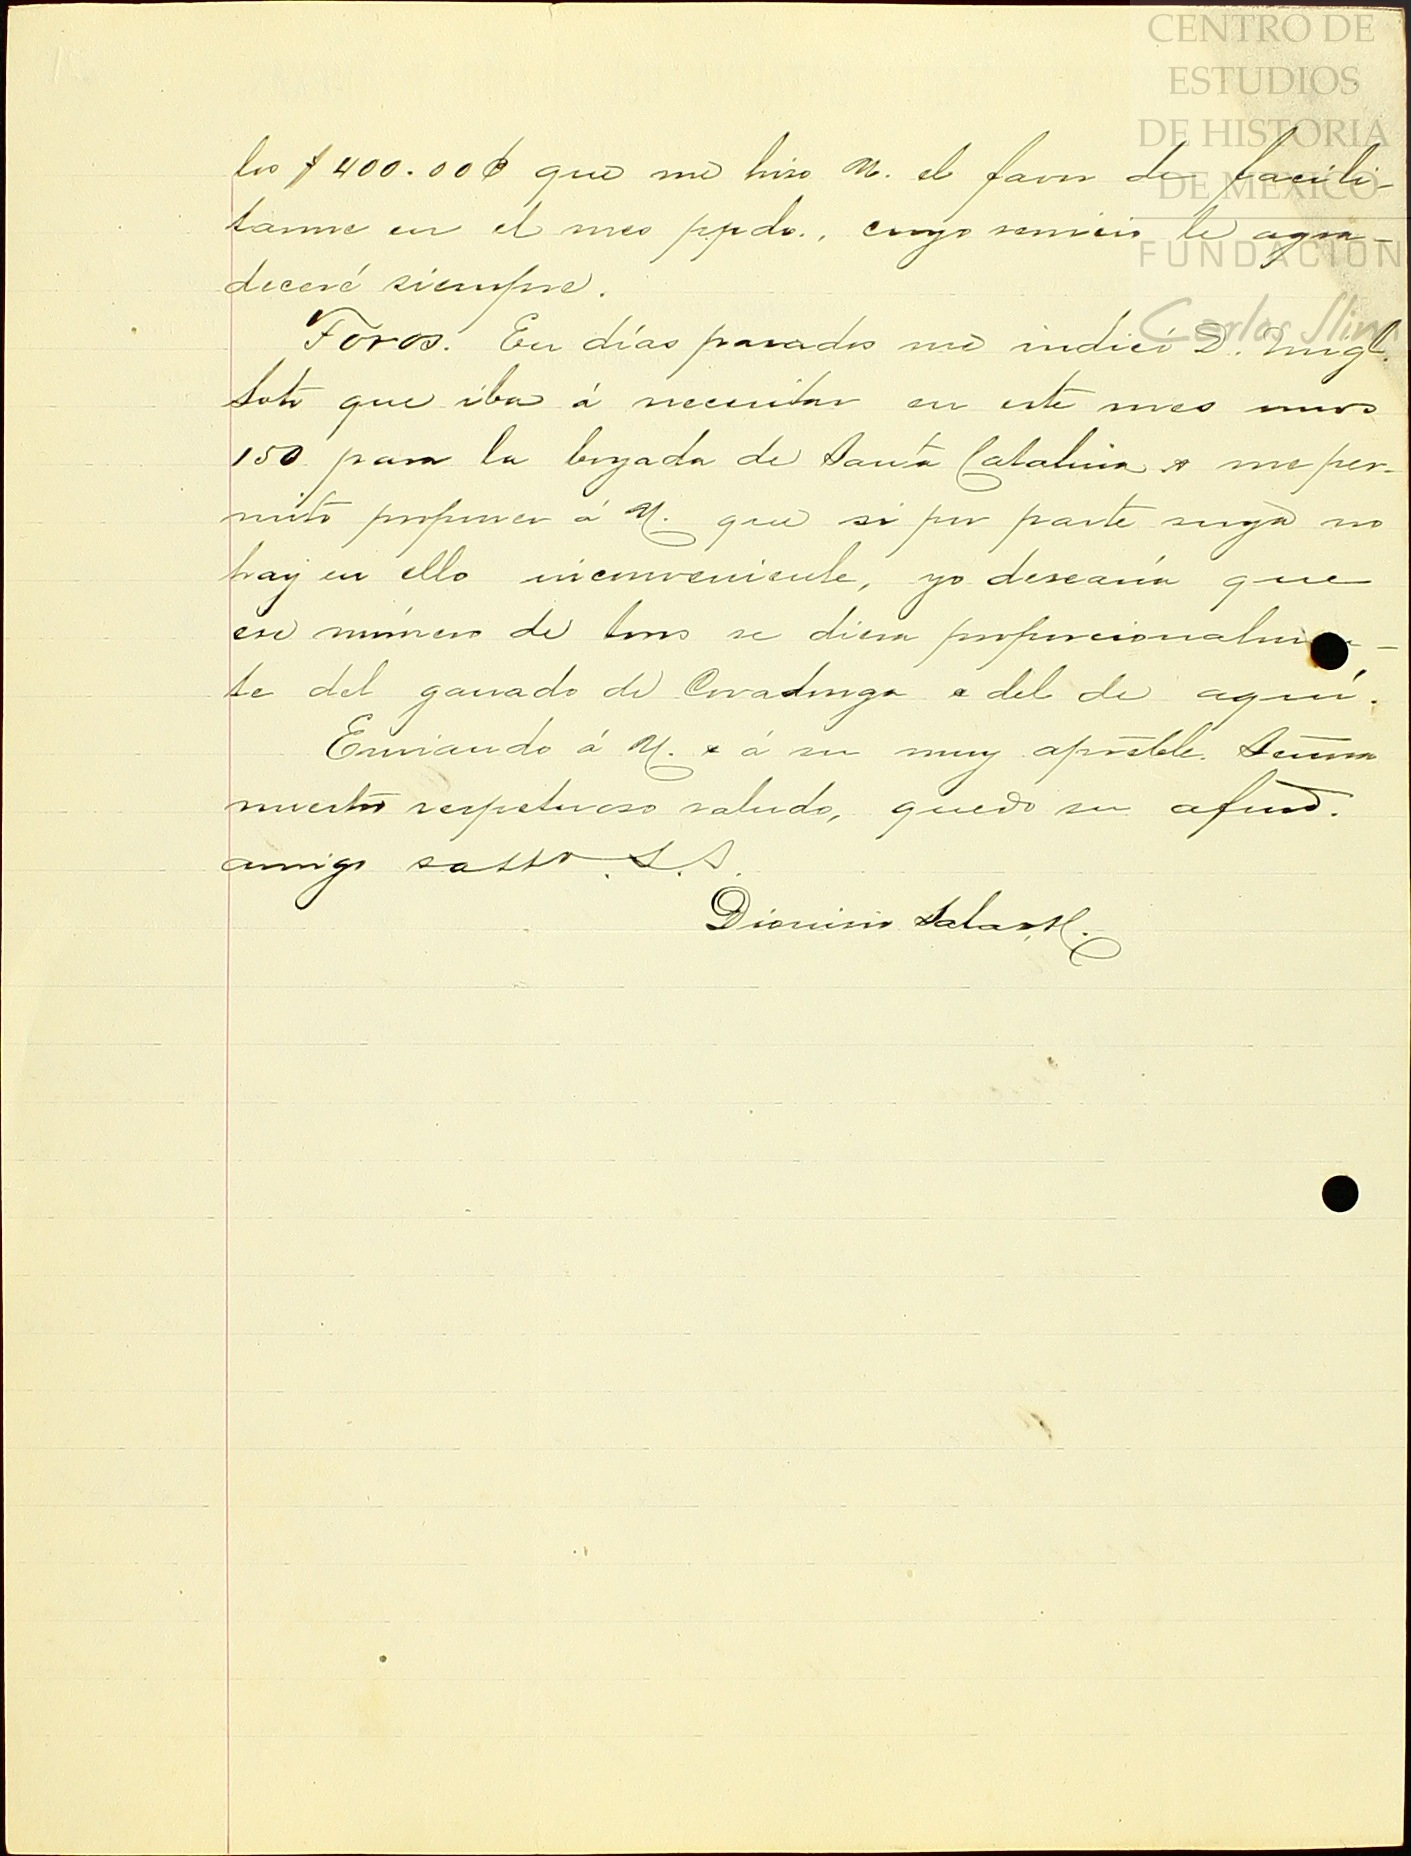 CENTRO DE
ESTUDIOS
DE HISTORIA
DE MÉXICO
FUNDACIÓN
Carlos Slim
los $400.00¢ que me hizo U. el favor de facili-
tarme en el mes ppdo., cuyo servicio le agra-
deceré siempre.
Toros. En días pasados me indicó D. Migl.
Soto que iba á necesitar en este mes unos
150 para la boyada de Santa Catalina y me per-
mito proponer á U. que si por parte suya no
hay en ello inconveniente, yo desearía que
ese número de toros se diera proporcionalmen-
te del ganado de Covadonga y del de aquí.
Enviando á U. y á su muy apreble. Señora
nuestro respetuoso saludo, quedo su afmo.
amigo S.S.
Dionisio Salas